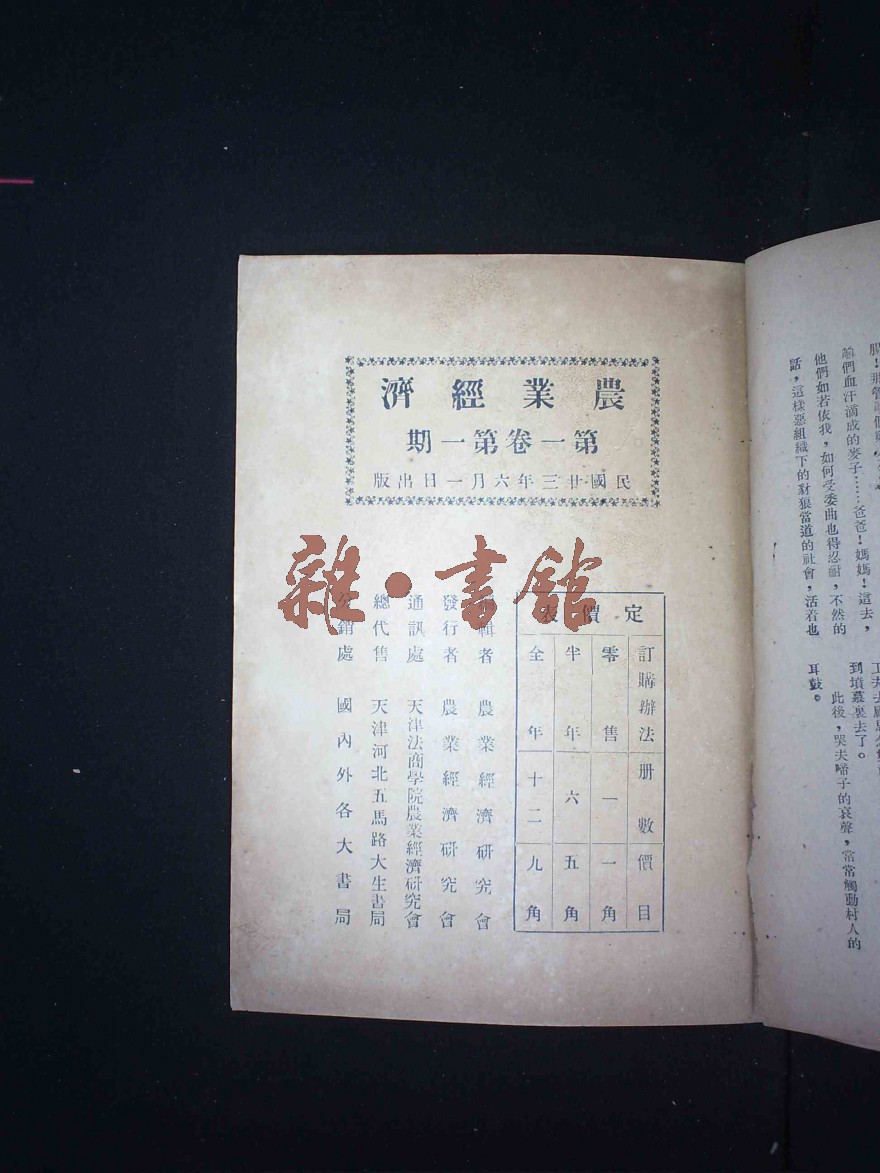 農業經濟
第一卷第一期
民國廿三年六月一日出版
定價表
訂購辦法 册數 價目
零售 一 一角
半年 六 五角
全年 十二 九角
編輯者 農業經濟研究會
發行者 農業經濟研究會
通訊處 天津法商學院農業經濟研究會
總代售 天津河北五馬路大生書局
分銷處 國內外各大書局
雜·書館
們血汗滴成的麥子……爸爸！媽媽！這去，
他們如若依我，如何受委曲也得忍耐，不然的
話，這樣惡組織下的豺狼當道的社會，活着也
到墳墓裏去了。
此後，哭夫啼子的哀聲，常常觸動村人的
耳鼓。